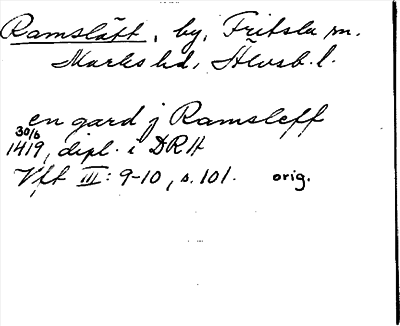 Ramslätt, by, Fritsla sn.
Marks hd, Älvsb. l.
en gard j Ramsleff
30/6
1419, dipl. i DRA
Vft III: 9-10, s. 101. orig.